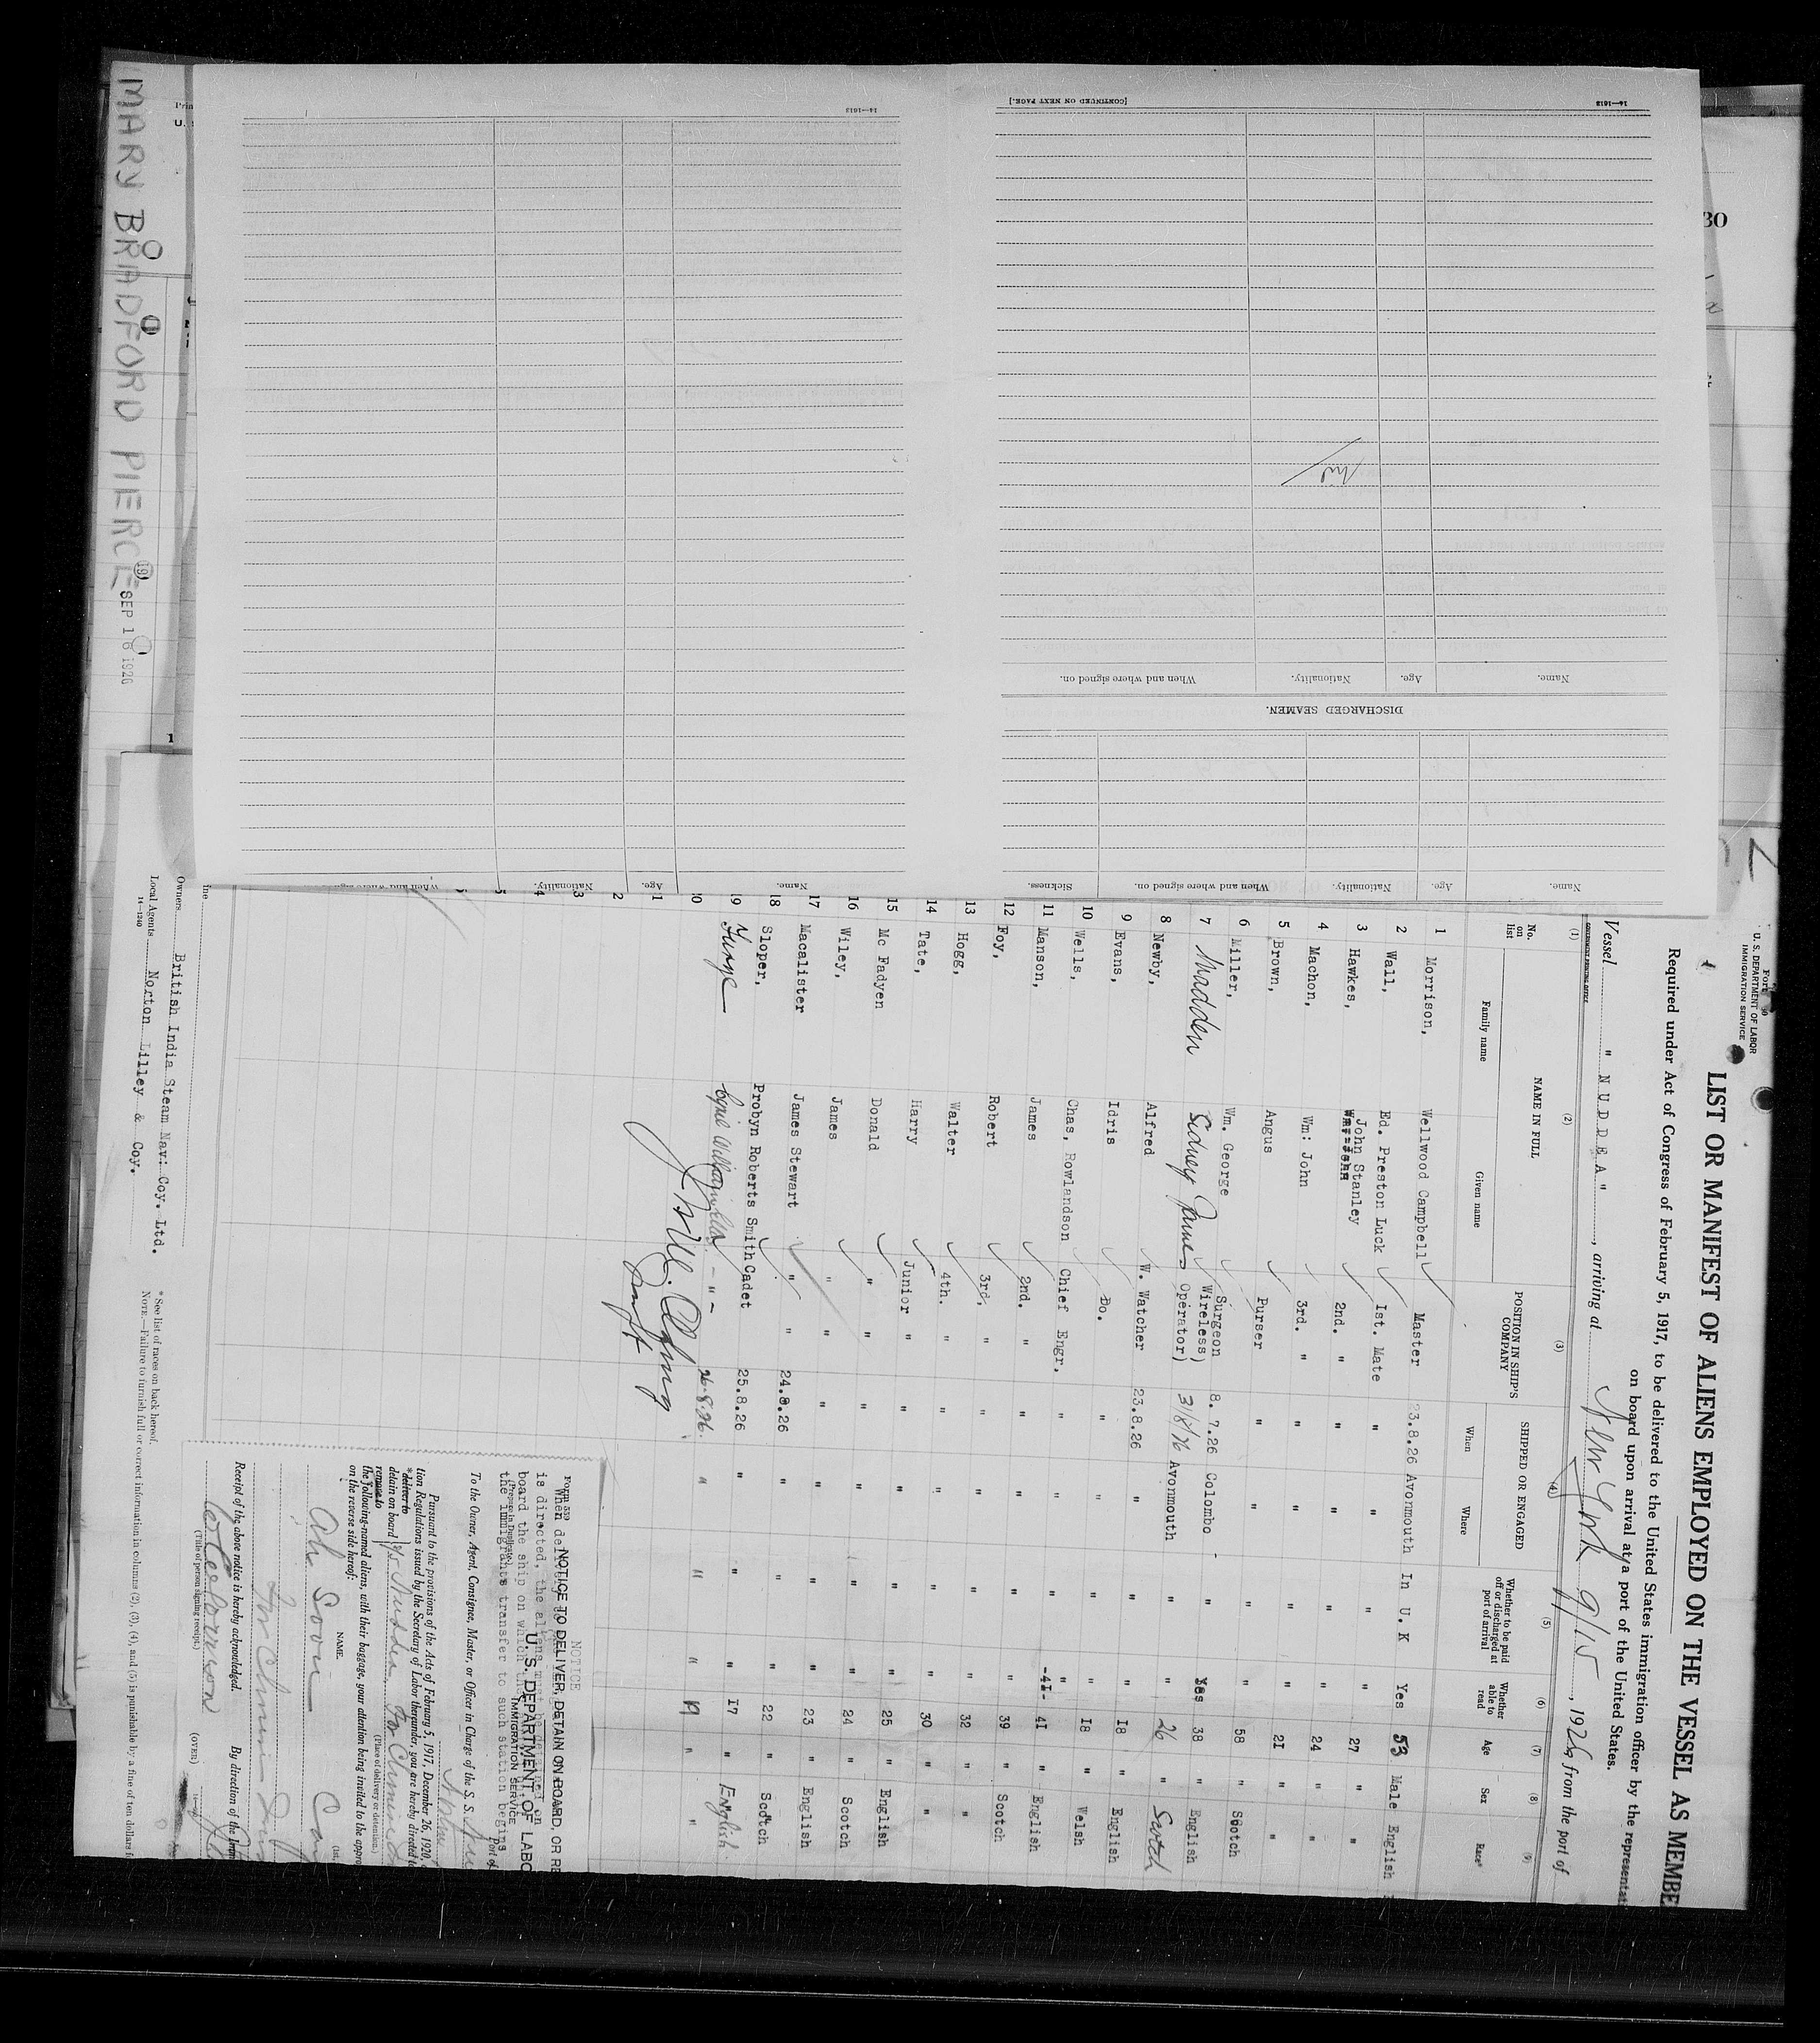 MARY BRADFORD PIERCE
SEP 16 1926
[CONTINUED ON NEXT PAGE.]
14—1613
14—1613
Nil
DISCHARGED SEAMEN.
Name. Age. Nationality. When and where signed on.
Name. Age. Nationality. When and where signed on. Sickness.
Name. Age. Nationality. When and where signed on.
U. S. DEPARTMENT OF LABOR
IMMIGRATION SERVICE
LIST OR MANIFEST OF ALIENS EMPLOYED ON THE VESSEL AS MEMBE
Required under Act of Congress of February 5, 1917, to be delivered to the United States immigration officer by the representat
on board upon arrival at a port of the United States.
Vessel " NUDDEA ", arriving at New York 9/15, 1926, from the port of
(1) (2) (3) (4) (5) (6) (7) (8) (9)
No. on list NAME IN FULL POSITION IN SHIP'S COMPANY SHIPPED OR ENGAGED Whether to be paid off or discharged at port of arrival Whether able to read Age Sex Race*
Family name Given name When Where
1 Morrison, Wellwood Campbell Master 23.8.26 Avonmouth In U. K Yes 53 Male English
2 Wall, Ed. Preston Luck 1st. Mate " " " "
3 Hawkes, John Stanley 2nd. " " " " " 27 " "
4 Machon, Wm: John 3rd. " " " " " 24 " "
5 Brown, Angus Purser " " " " 21 " "
6 Miller, Wm. George Surgeon 8. 7.26 Colombo " " 58 " Scotch
7 Madden Sidney James Wireless) Operator) 31/8/26 Avonmouth " Yes 38 " English
8 Newby, Alfred W. Watcher 23.8.26 " " " 26 " Scotch
9 Evans, Idris Do. " " " " 18 " English
10 Wells, Chas, Rowlandson Chief Engr. " " " " 18 " Welsh
11 Manson, James 2nd. " " " " -41- 41 " English
12 Foy, Robert 3rd. " " " " " 39 " Scotch
13 Hogg, Walter 4th. " " " " " 32 " "
14 Tate, Harry Junior " " " " " 30 " "
15 Mc Fadyen Donald " " " " " " 25 " English
16 Wiley, James " " " " " " 24 " Scotch
17 Macalister James Stewart " " 24.8.26 " " " 23 " English
18 Sloper, Probyn Roberts Smith Cadet 25.8.26 " " " 22 " Scotch
19 - " - 26.8.26. " " " 17 " English
19 " "
Owners British India Steam Nav: Coy. Ltd.
Local Agents Norton Lilley & Coy.
14—1240
* See list of races on back hereof.
NOTE.—Failure to furnish full or correct information in columns (2), (3), (4), and (5) is punishable by a fine of ten dollars f
NOTICE
Form 559
NOTICE TO DELIVER, DETAIN ON BOARD, OR RE
U. S. DEPARTMENT OF LABO
IMMIGRATION SERVICE
is directed, the aliens must be detained on
board the ship on which
the Immigrants transfer to such station begins
To the Owner, Agent, Consignee, Master, or Officer in Charge of the S. S.
Pursuant to the provisions of the Acts of February 5, 1917, December 26, 1920,
tion Regulations issued by the Secretary of Labor thereunder, you are hereby directed t
*deliver to
detain on board
remove to
(Place of delivery or detention.)
the following-named aliens, with their baggage, your attention being invited to the appro
on the reverse side hereof:
NAME.
Ah Soou
Receipt of the above notice is hereby acknowledged. By direction of the Imm
(Title of person signing receipt.)
(OVER)